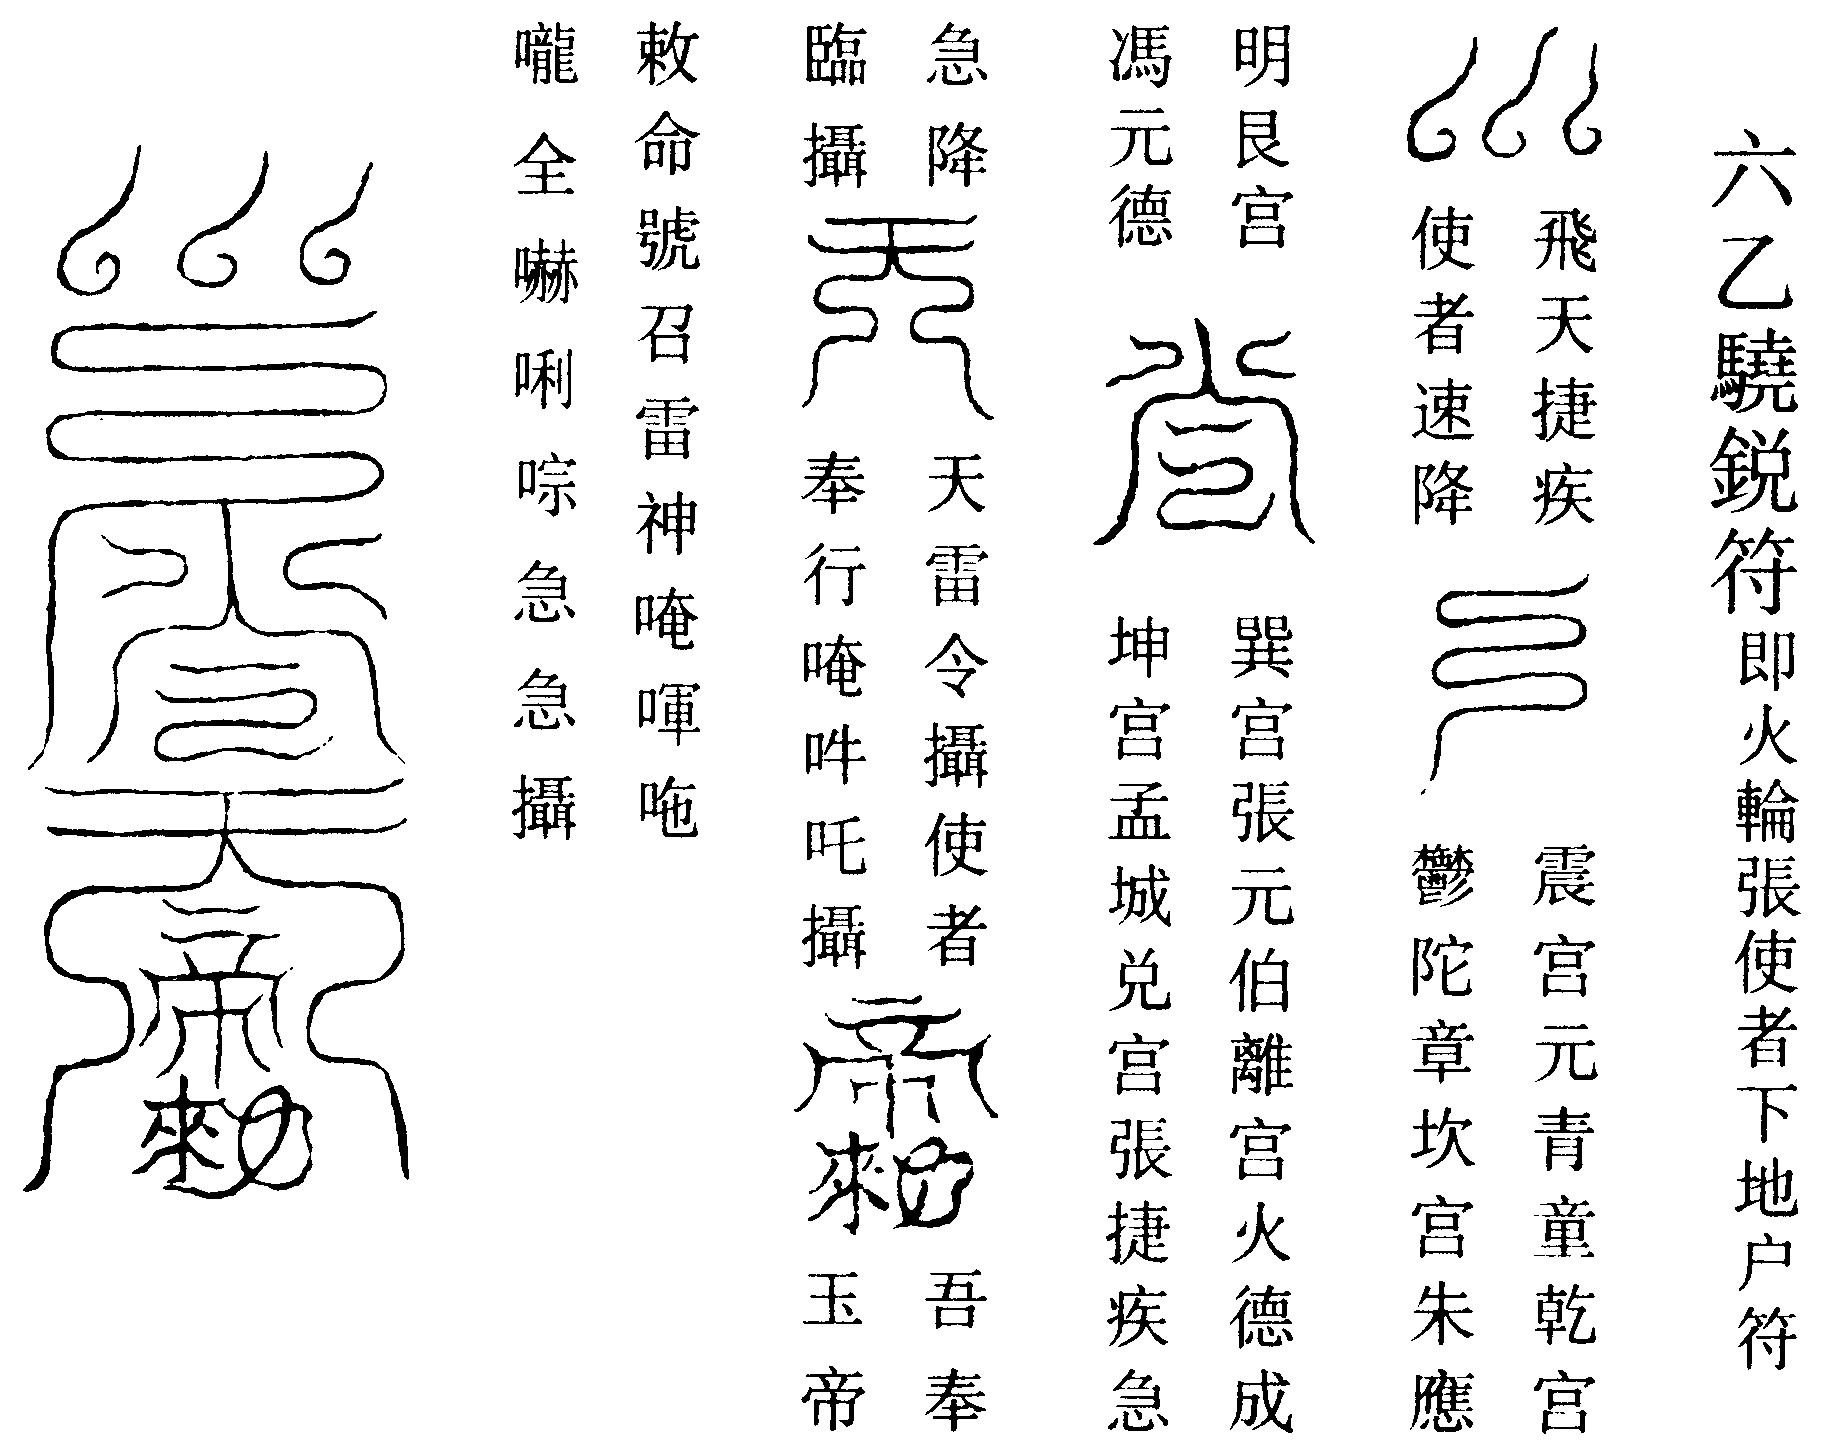 六乙驍鋭符即火輪張使者下地户符
飛天捷疾
使者速降
震宫元青童乾宫
鬱陀章坎宫朱應
明艮宫
馮元德
巽宫張元伯離宫火德成
坤宫孟城兑宫張捷疾急
急降
臨攝
天雷令攝使者
奉行唵吽吒攝
吾奉
玉帝
敕命號召雷神唵喗咃
嚨全嚇唎急急攝